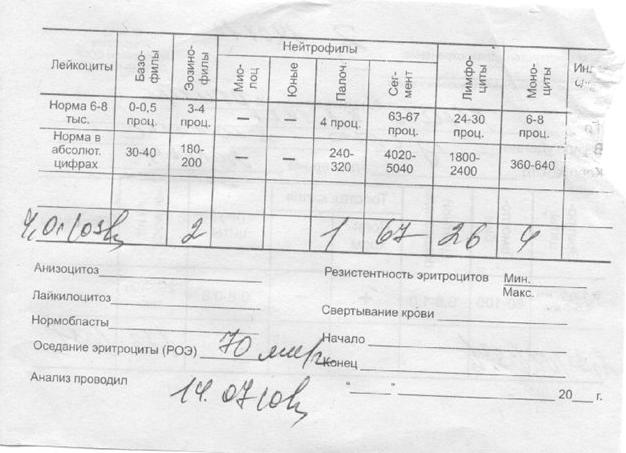 Нейтрофилы
Лейкоциты Базо-филы Эозино-филы Мио-лоц Юные Палоч. Сег-мент Лимфо-циты Моно-циты
Норма 6-8 тыс. 0-0,5 проц. 3-4 проц. — — 4 проц. 63-67 проц. 24-30 проц. 6-8 проц.
Норма в абсолют. цифрах 30-40 180-200 — — 240-320 4020-5040 1800-2400 360-640
2 1 67 26 4
Анизоцитоз Резистентность эритроцитов Мин.
Макс.
Лайкилоцитоз Свертывание крови
Нормобласты Начало
Оседание эритроциты (РОЭ) 70 мм/ч Конец
Анализ проводил 14.07 “ ” 20 г.